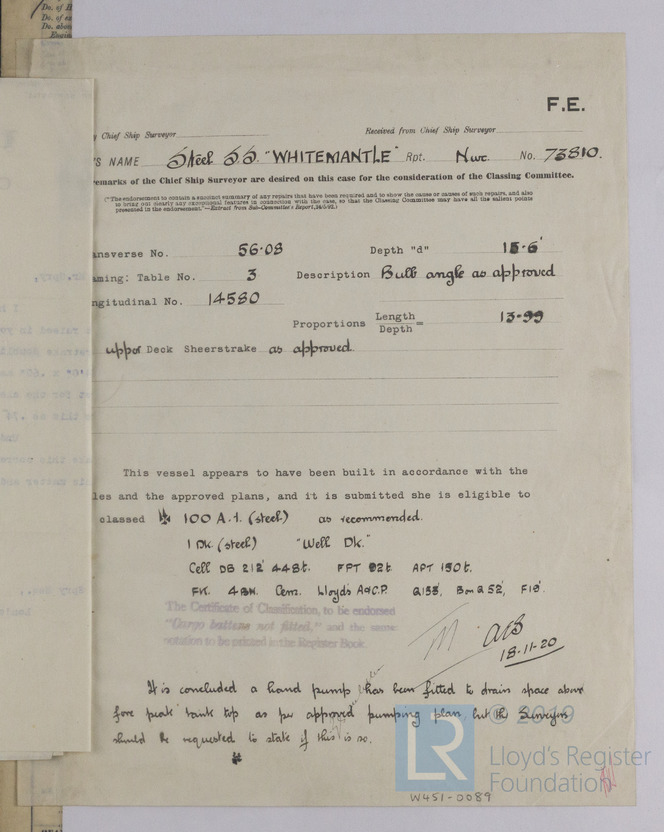 F.E.
y Chief Ship Surveyor Received from Chief Ship Surveyor
'S NAME Steel S.S. "WHITEMANTLE" Rpt. Nwc. No. 73810.
remarks of the Chief Ship Surveyor are desired on this case for the consideration of the Classing Committee.
("The endorsement to contain a succinct summary of any repairs that have been required and to show the cause or causes of such repairs, and also
to bring out clearly any exceptional features in connection with the case, so that the Classing Committee may have all the salient points
presented in the endorsement."—Extract from Sub-Committee's Report,
ansverse No. 56·08 Depth "d" 15·6'
aming: Table No. 3 Description Bulb angle as approved
ngitudinal No. 14580
Proportions Length/Depth = 13·99
upper Deck Sheerstrake as approved.
This vessel appears to have been built in accordance with the
les and the approved plans, and it is submitted she is eligible to
classed ✠ 100 A.1. (steel) as recommended.
1 Dk. (steel) "Well Dk."
Cell DB 212' 448t. FPT 92t. APT 150t.
FK. 4BH. Cem. Lloyd's A&CP. Q153', B 52', F19'.
The Certificate of Classification, to be endorsed
"Cargo battens not fitted," and the same
notation to be printed in the Register Book.
18·11·20
It is concluded a hand pump has been fitted to drain space above
fore peak tank top as per approved pumping plan, but the Surveyors
should be requested to state if this is so.
© 2019
LR
Lloyd's Register
Foundation
W451-0089